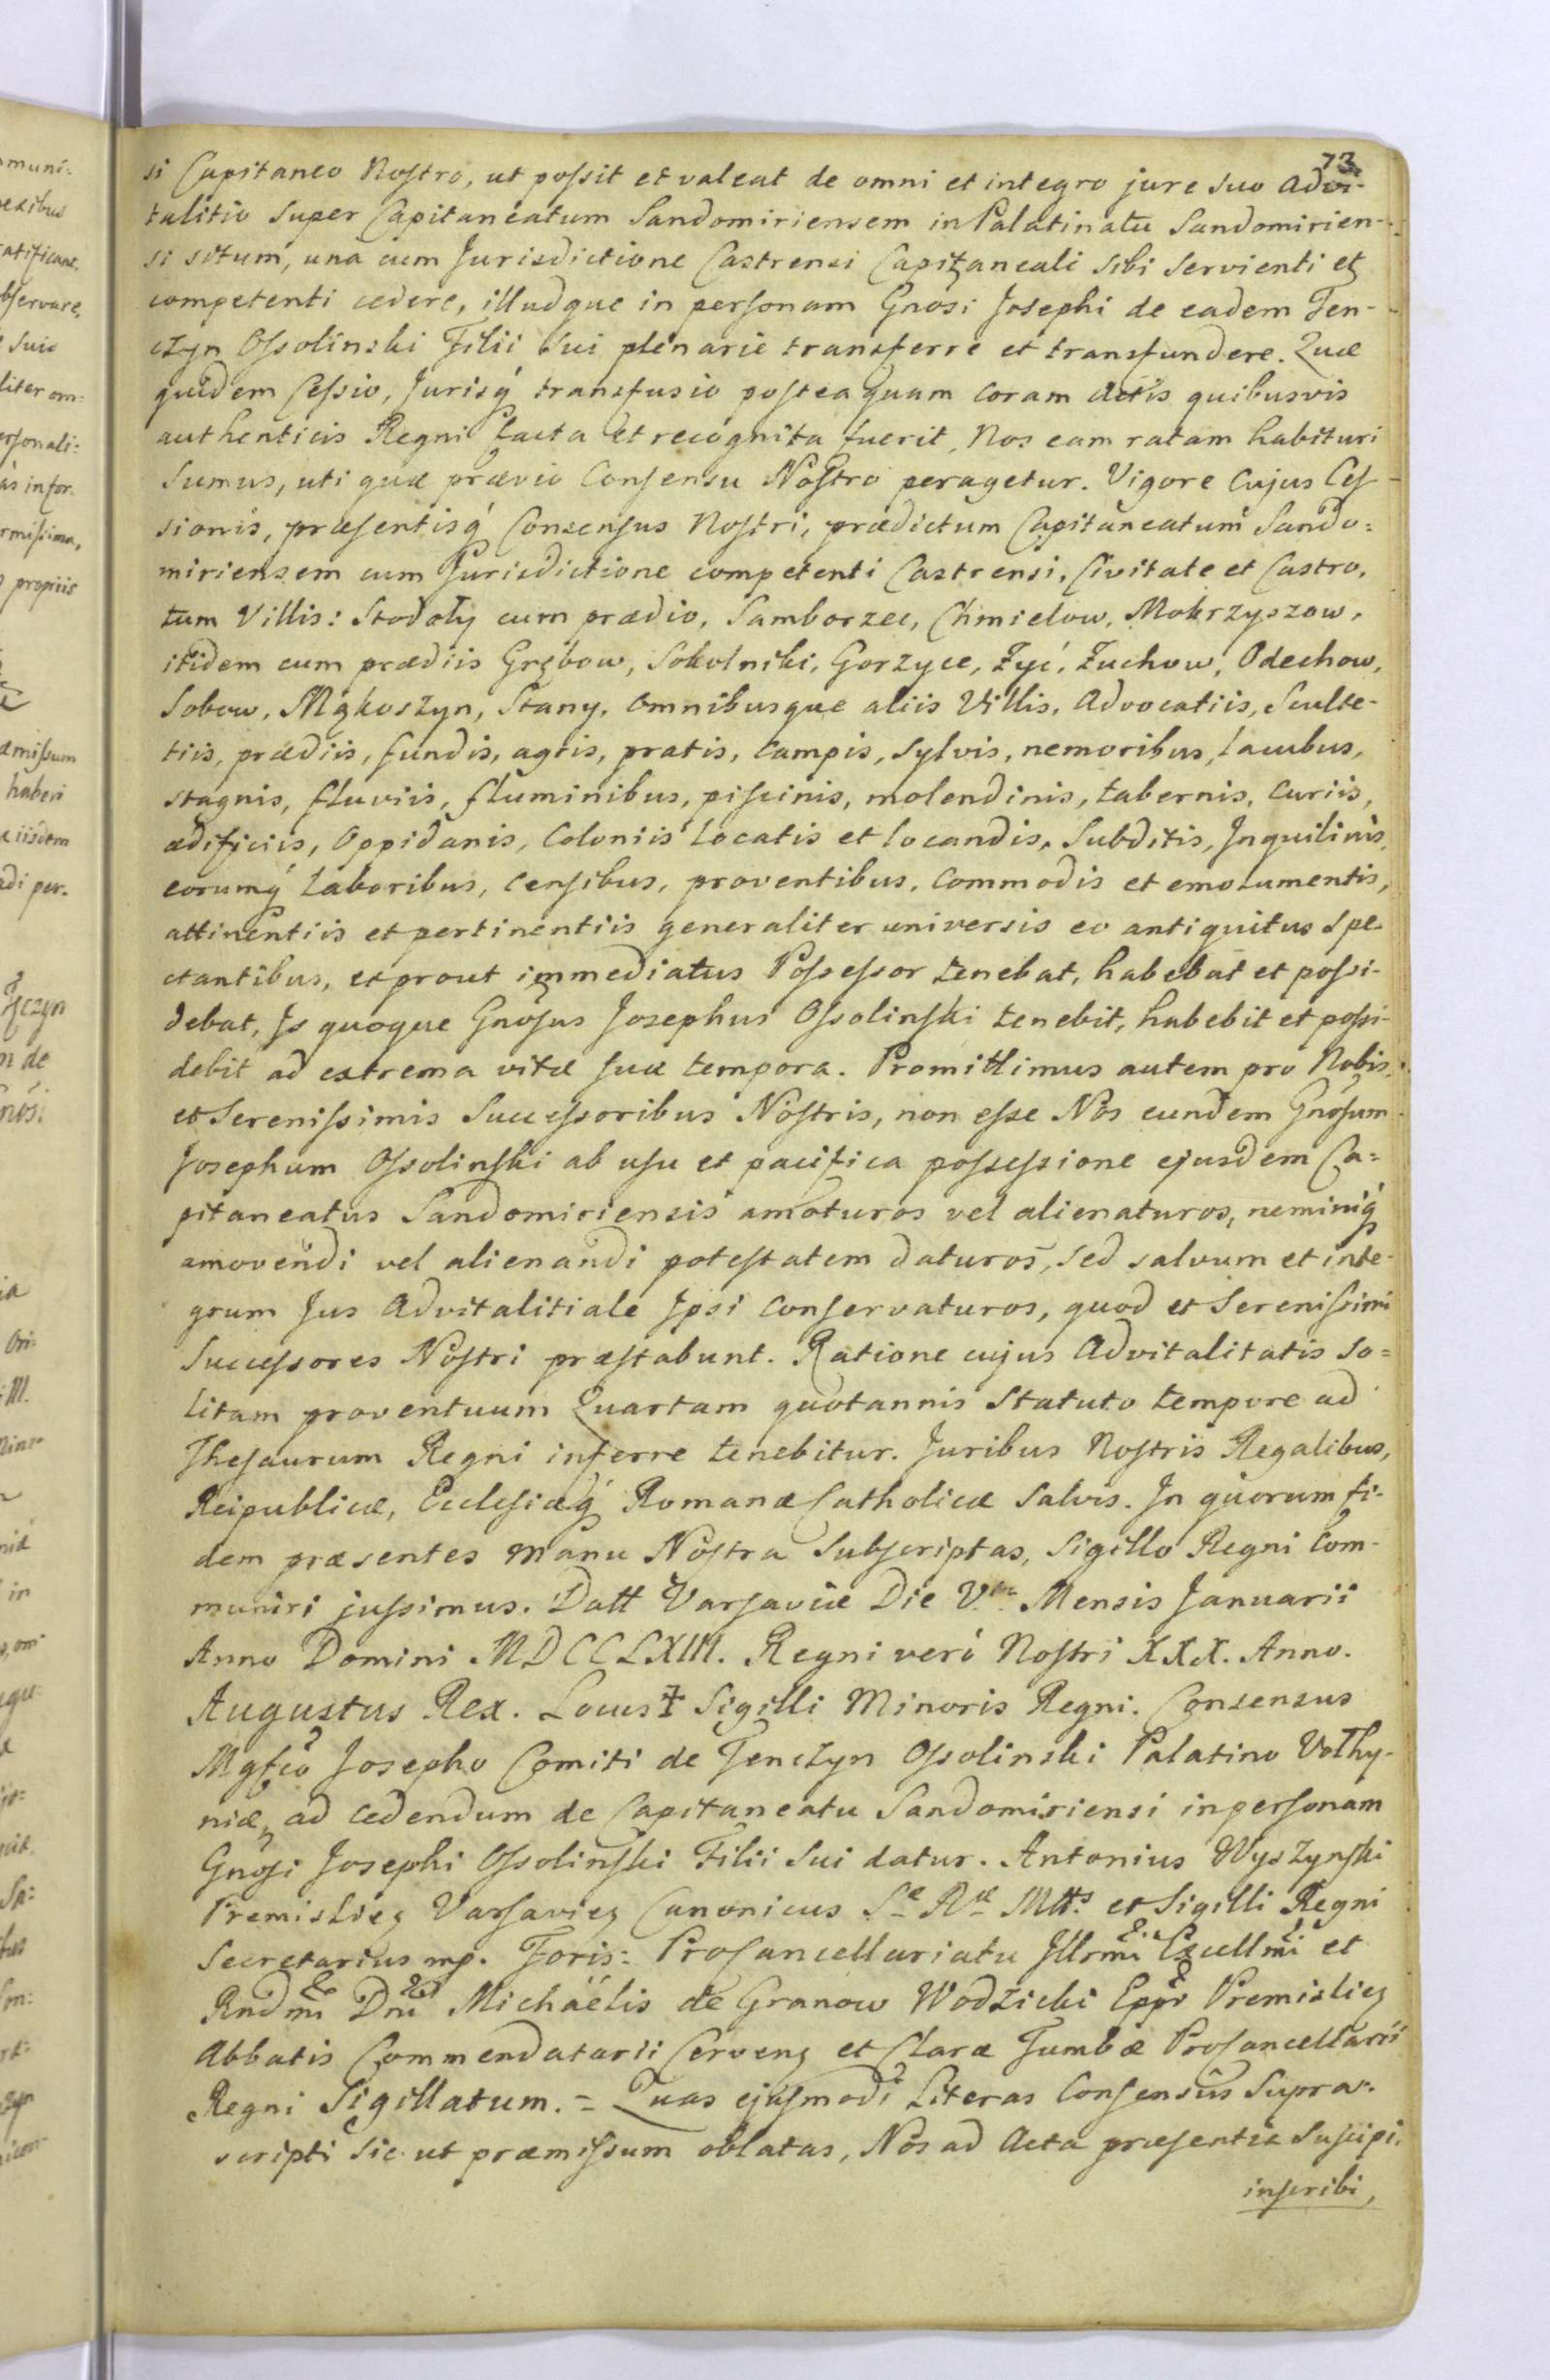 73
si Capitaneo Nostro, ut possit et valeat de omni et integro jure suo advi-
talitio super Capitaneatum Sandomiriensem in Palatinatu Sandomirien-
si situm, una cum Jurisdictione Castrensi Capitaneali sibi servienti et
competenti cedere, illudque in personam Gnosi Josephi de eadem Ten-
czyn Ossolinski Filii sui plenarie transferre et transfundere. Quæ
quidem Cessio, Jurisq́ transfusio posteaquam coram Actis quibusvis
authenticis Regni facta et recognita fuerit, Nos eam ratam habituri
sumus, uti quæ prævio Consensu Nostro peragetur. Vigore cujus Ces-
sionis, præsentisq́ Consensus Nostri, prædictum Capitaneatum Sando=
miriensem cum Jurisdictione competenti Castrensi, Civitate et Castro,
tum Villis: Stodoły cum prædio, Samborzec, Chmielow, Mokrzyszow,
itidem cum prædiis Grębow, Sokolniki, Gorzyce, Żyć, Żuchow, Odechow,
Sobow, Mąkoszyn, Stany, omnibusque aliis Villis, Advocatiis, Sculte-
tiis, prædiis, fundis, agris, pratis, campis, sylvis, nemoribus, lacubus,
stagnis, fluviis, fluminibus, piscinis, molendinis, tabernis, curiis,
ædificiis, Oppidanis, Coloniis locatis et locandis, Subditis, Inquilinis,
eorumq́ laboribus, censibus, proventibus, commodis et emolumentis,
attinentiis et pertinentiis generaliter universis eo antiquitus spe-
ctantibus, et prout immediatus Possessor tenebat, habebat et possi-
debat, Is quoque Gnosus Josephus Ossolinski tenebit, habebit et possi-
debit ad extrema vitæ suæ tempora. Promittimus autem pro Nobis
et Serenissimis Successoribus Nostris, non esse Nos eundem Gnosum
Josephum Ossolinski ab usu et pacifica possessione ejusdem Ca=
pitaneatus Sandomiriensis amoturos vel alienaturos, neminiq́
amovendi vel alienandi potestatem daturos, sed salvum et inte-
grum Jus Advitalitiale Ipsi conservaturos, quod et Serenissimi
Successores Nostri præstabunt. Ratione cujus Advitalitatis so=
litam proventuum Quartam quotannis statuto tempore ad
Thesaurum Regni inferre tenebitur. Juribus Nostris Regalibus,
Reipublicæ, Ecclesiæq́ Romanæ Catholicæ salvis. In quorum fi-
dem præsentes manu Nostra subscriptas, Sigillo Regni com-
muniri jussimus. Datt Varsaviæ Die V.ta Mensis Januarii
Anno Domini MDCCLXIII. Regni verò Nostri XXX. Anno.
Augustus Rex. Locus ‡ Sigilli Minoris Regni. Consensus
Mgfco Josepho Comiti de Tenczyn Ossolinski Palatino Volhy-
niæ, ad cedendum de Capitaneatu Sandomiriensi in personam
Gnosi Josephi Ossolinski Filii sui datur. Antonius Wyszynski
Premislieñ Varsavieñ Canonicus S. R. Mtts. et Sigilli Regni
Secretarius mp. Foris: Procancellariatu Illrmi Excellmi et
Rndmi Dni Michaëlis de Granow Wodzicki Eppi Premislieñ
Abbatis Commendatarii Cerveñ et Claræ Tumbæ Procancellarii
Regni Sigillatum. = Quas ejusmodi Literas Consensûs supra=
scripti sic ut præmissum oblatas, Nos ad Acta præsentia suscipi,
inscribi,